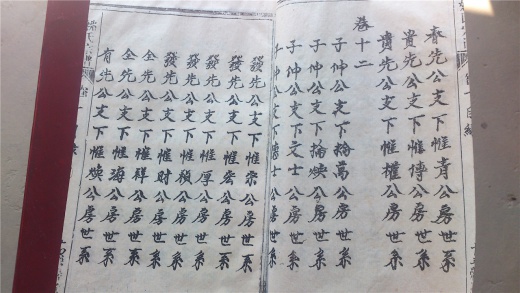 春先公支下惟青公房世系
贵先公支下惟傳公房世系
貴先公支下惟權公房世系
卷十二
子仲公支下掄萬公房世系
子仲公支下掄煥公房世系
子仲公支下文士公房世系
子仲公支下德士公房世系
發先公支下惟崇公房世系
發先公支下惟宏公房世系
發先公支下惟厚公房世系
發先公支下惟領公房世系
全先公支下惟财公房世系
全先公支下惟群公房世系
有先公支下惟海公房世系
有先公支下惟煥公房世系